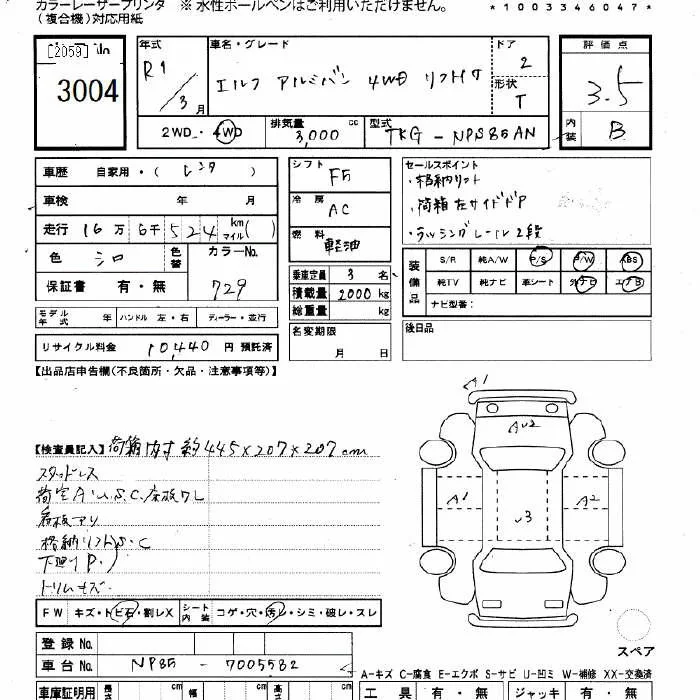 カラーレーザープリンタ ※ 水性ボールペンはご利用いただけません。 *1003346047*
(複合機)対応用紙
[2059]
3004
年式 R1 / 3月
車名・グレード エルフ アルミバン 4WD リフト付
ドア 2
形状 T
2WD・4WD 排気量 3,000 cc 型式 TKG-NPS85AN
評価点 3.5
内装 B
車歴 自家用・(レンタ)
車検 年 月
走行 16万6千524 km マイル( )
色 シロ 色替 カラーNo. 729
保証書 有・無
モデル年式 年 ハンドル 左・右 ディーラー・並行
リサイクル料金 10,440 円 預託済
シフト F5
冷房 AC
燃料 軽油
乗車定員 3 名
積載量 2000 kg
総重量 kg
名変期限 月 日
セールスポイント
・格納リフト
・荷箱左サイドドア
・ラッシングレール2段
装備品 S/R 純A/W P/S P/W ABS
純TV 純ナビ 革シート 外ナビ エアB
ナビ型番:
後日品
【出品店申告欄(不良箇所・欠品・注意事項等)】
【検査員記入】荷箱内寸約445×207×207cm
スタッドレス
看板アリ
格納リフトS.C
トリムキズ
FW キズ・トビ石・割レX シート内装 コゲ・穴・汚レ・シミ・破レ・スレ
A1
AU2
A1
A2
U3
スペア
登録No.
車台No. NP85 - 7005582
A-キズ C-腐食 E-エクボ S-サビ U-凹ミ W-補修 XX-交換済
車庫証明用 長さ cm 幅 cm 高さ cm 工具 有・無 ジャッキ 有・無